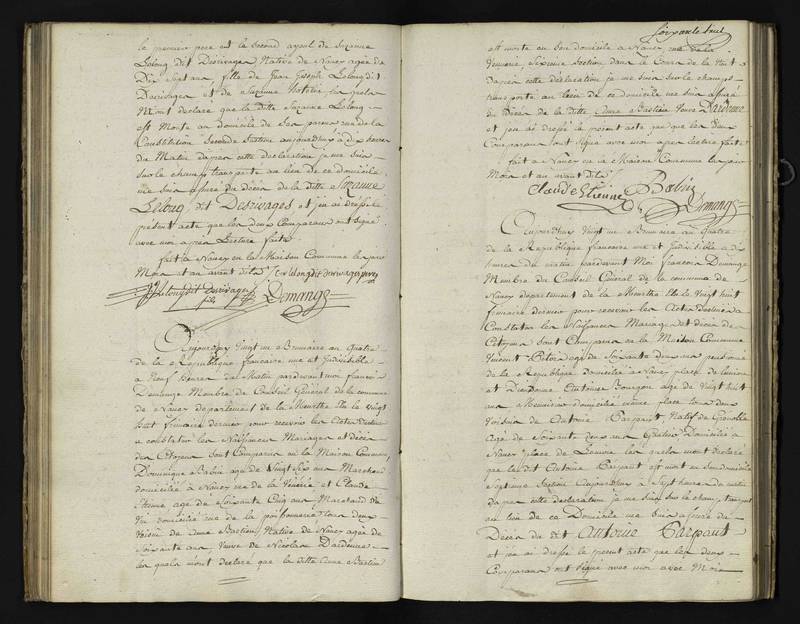 le premier pere et le second ayeul de Suzanne
Lelong dit Desrivages Native de Nancy agée de
Dix Sept ans fille de Jean Joseph Lelong dit
Desrivages et de Suzanne
Mont declaré que la ditte Suzanne Lelong
est Morte au domicile de Ses parens rue de la
Constitution Seconde Section aujourdhuy a dix heures
du Matin dapres cette declaration je me suis
Sur le champ transporté au lieu de ce domicile
me suis assuré du Décès de la ditte Suzanne
Lelong dit Desrivages et j'en ai dréssé le
present acte que les deux Comparans ont Signé
avec moi après Lecture faite
fait a Nancy en la Maison Commune les jour
Mois et an avant dits
Lelong dit Desrivages
fils Demange
Aujourdhuy Vingt un Brumaire an Quatre
de la République francaise une et Indivisible
a Neuf heures du Matin pardevant moi francois
Demange Membre du Conseil Général de la commune
de Nancy departement de la Meurthe Elu le vingt
huit frimaire dernier pour recevoir les Actes destinés
a constater les Naissances Mariages et décès
des Citoyens sont Comparus en la Maison Commune
Dominique Babin agé de Vingt Six ans Marchand
domicilié a Nancy rue de la Vénerie et Claude
Etienne agé de Soixante Cinq ans Marchand de
Vin domicilié rue de la poissonnerie tous deux
Voisins de Anne Bastien Native de Nancy agée de
Soixante ans Veuve de Nicolas Dardenne
les quels mont declaré que la ditte Anne Bastien
Soixante huit
est morte en Son domicile a Nancy rue de la
Vennerie Sixieme Section dans le Cours de la Nuit
Dapres cette déclaration je me suis sur le champ
transporté au lieu de ce domicile me suis assuré
du Décès de la ditte Anne Bastien Veuve Dardenne
et j'en ai dréssé le present acte que les deux
Comparans ont Signé avec moi apres lecture faite
fait a Nancy en la Maison Commune les jour
Mois et an avant dits
Claude Etienne Babin
Demange
Aujourdhuy Vingt un Brumaire an Quatre
de la République francaise une et Indivisible a dix
heures du matin pardevant Moi francois Demange
Membre du Conseil Général de la commune de
Nancy departement de la Meurthe Elu le Vingt huit
frimaire dernier pour recevoir les Actes destinés a
Constater les Naissances Mariages et décès de
Citoyens Sont Comparus en la Maison Commune
agé de Soixante deux ans pensionné
de la République domicilié a Nancy place
et agé de Vingt huit
ans Menuisier domicilié même place tous deux
Voisins de Antoine Carpaut, Natif de Grenoble
Agé de Soixante deux ans Domicilié a
Nancy place de les quels mont declaré
que le dit Antoine Carpaut est mort en Son domicile
Septieme Section Aujourdhuy a Sept heures du matin
dapres cette déclaration je me suis Sur le champ transporté
au lieu de ce Domicile me suis assuré du
Décès du dit Antoine Carpaut
et j'en ai dréssé le present acte que les deux
Comparans ont Signé avec moi avec Moi